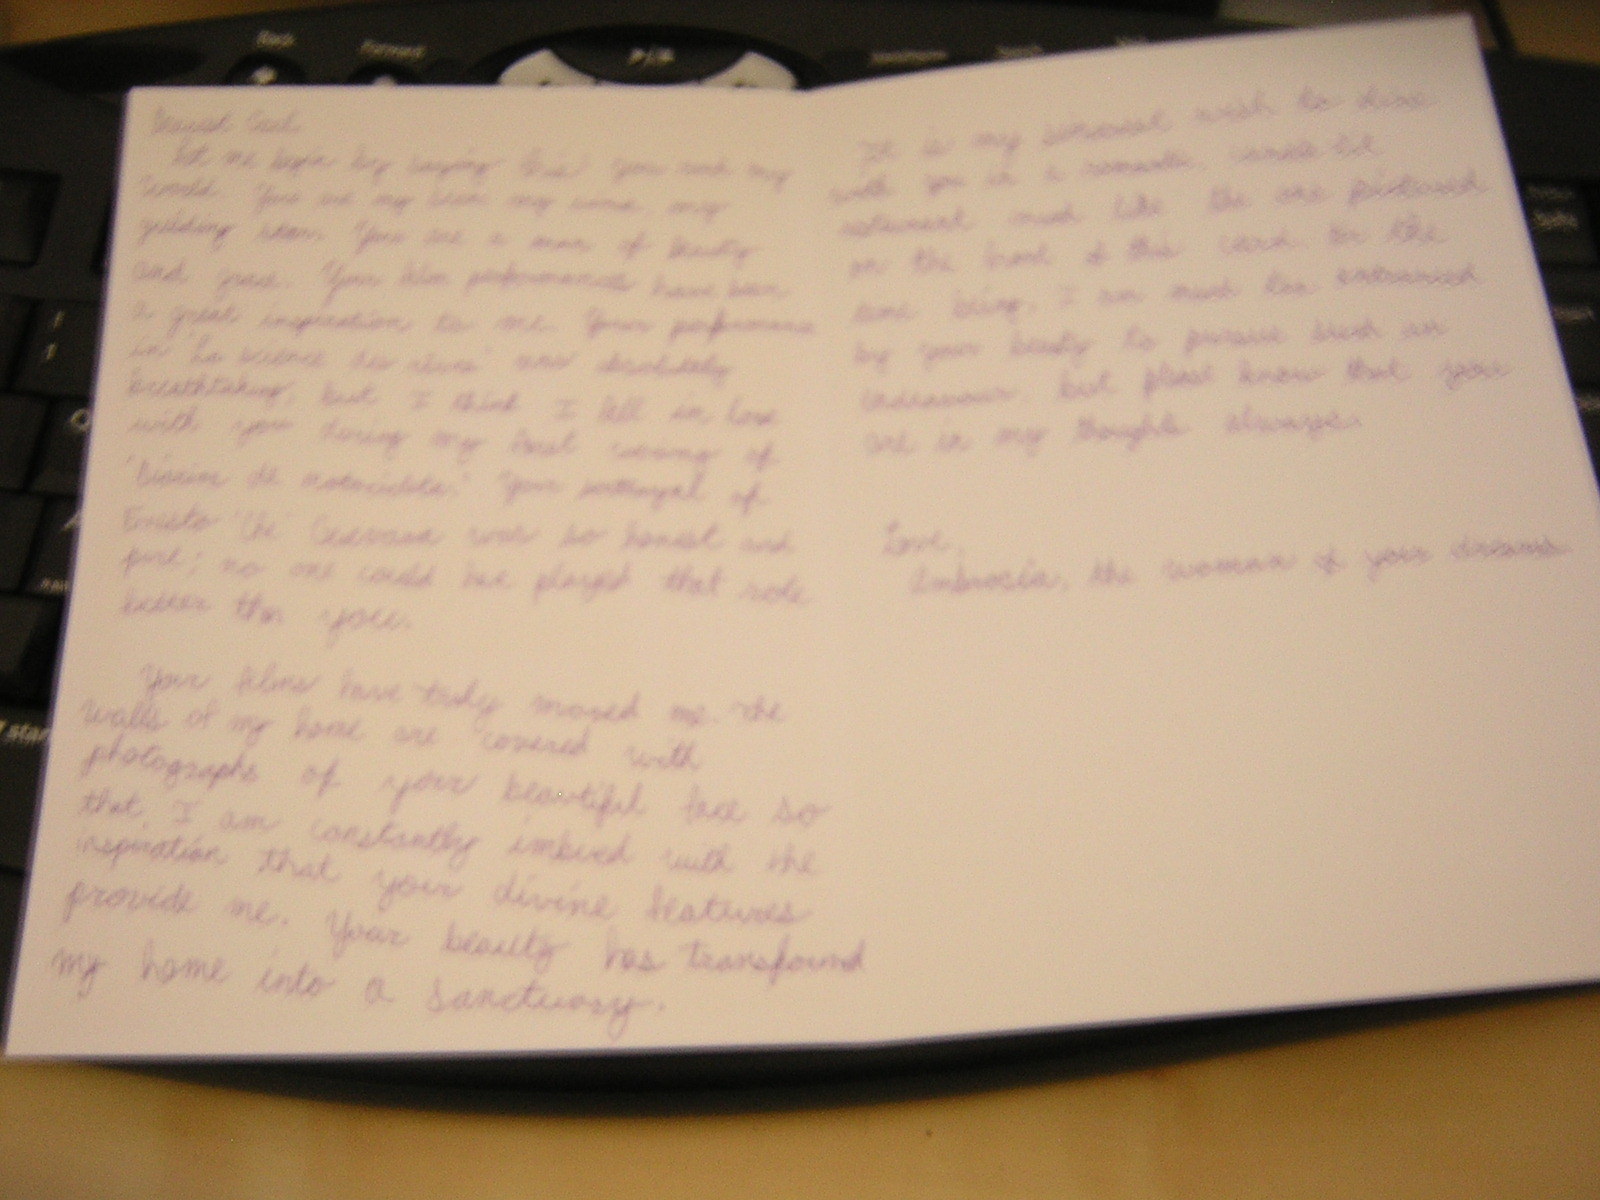 Dearest Gael,
Let me begin by saying this: you rock my
world. You are my moon, my
guiding star. You are a man of beauty
and grace. Your film performances have been
a great inspiration to me. Your performance
in "La science des rêves" was absolutely
breathtaking, but I think I fell in love
with you during my first viewing of
"Diarios de motocicleta." Your portrayal of
Ernesto "Che" Guevara was so honest and
pure; no one could have played that role
better than you.
Your films have truly moved me. The
walls of my home are covered with
photographs of your beautiful face so
that I am constantly imbued with the
inspiration that your divine features
provide me. Your beauty has transformed
my home into a sanctuary.
It is my wish to dine
with you in a romantic, candle-lit
restaurant much like the one pictured
on the front of this card. For the
time being, I am much too entranced
by your beauty to pursue such an
endeavour, but please know that you
are in my thoughts always.
Love,
Ambrosia, the woman of your dreams
Back
Forward